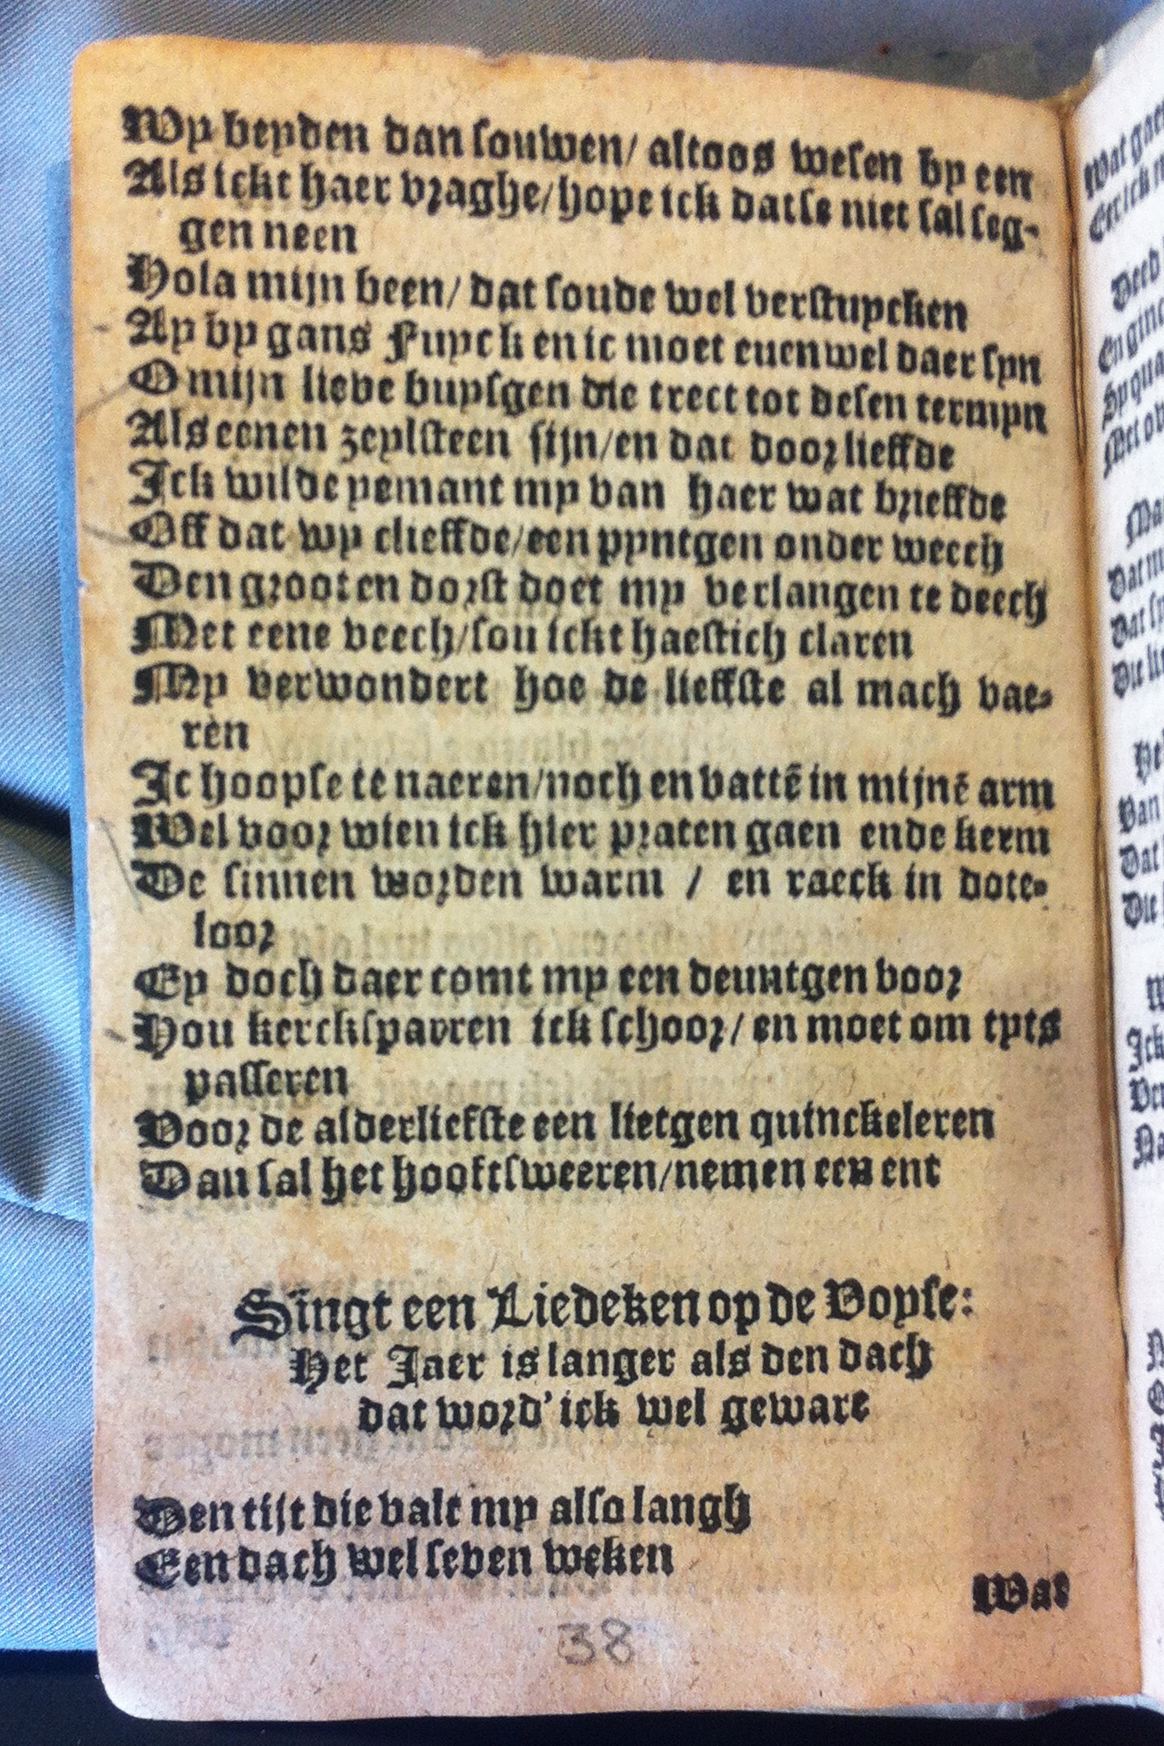 Wy beyden dan souwen/ altoos wesen by een
Als ickt haer vraghe/hope ick datse niet sal seg-
gen neen
Hola mijn been/ dat soude wel verstuycken
Ay by gans Fuyck en ic moet euenwel daer syn
O mijn lieve buysgen die trect tot desen termyn
Als eenen zeylsteen sijn/en dat door lieffde
Ick wilde yemant my van haer wat brieffde
Off dat wy clieffde/een pyntgen onder weech
Den grooten dorst doet my verlangen te deech
Met eene veech/sou ickt haestich claren
My verwondert hoe de lieffste al mach vae-
ren
Ic hoopse te naeren/noch en vattē in mijnē arm
Wel voor wien ick hier praten gaen ende kerm
De sinnen worden warm / en raeck in dote-
loor
Ey doch daer comt my een deuntgen voor
Hou kercksparren ick schoor/ en moet om tyts
passeren
Voor de alderliefste een lietgen quinckeleren
Dan sal het hooftsweeren/nemen een ent
Singt een Liedeken op de Voyse:
Het Jaer is langer als den dach
dat word' ick wel geware
Den tijt die valt my also langh
Een dach wel seven weken
Wat
38